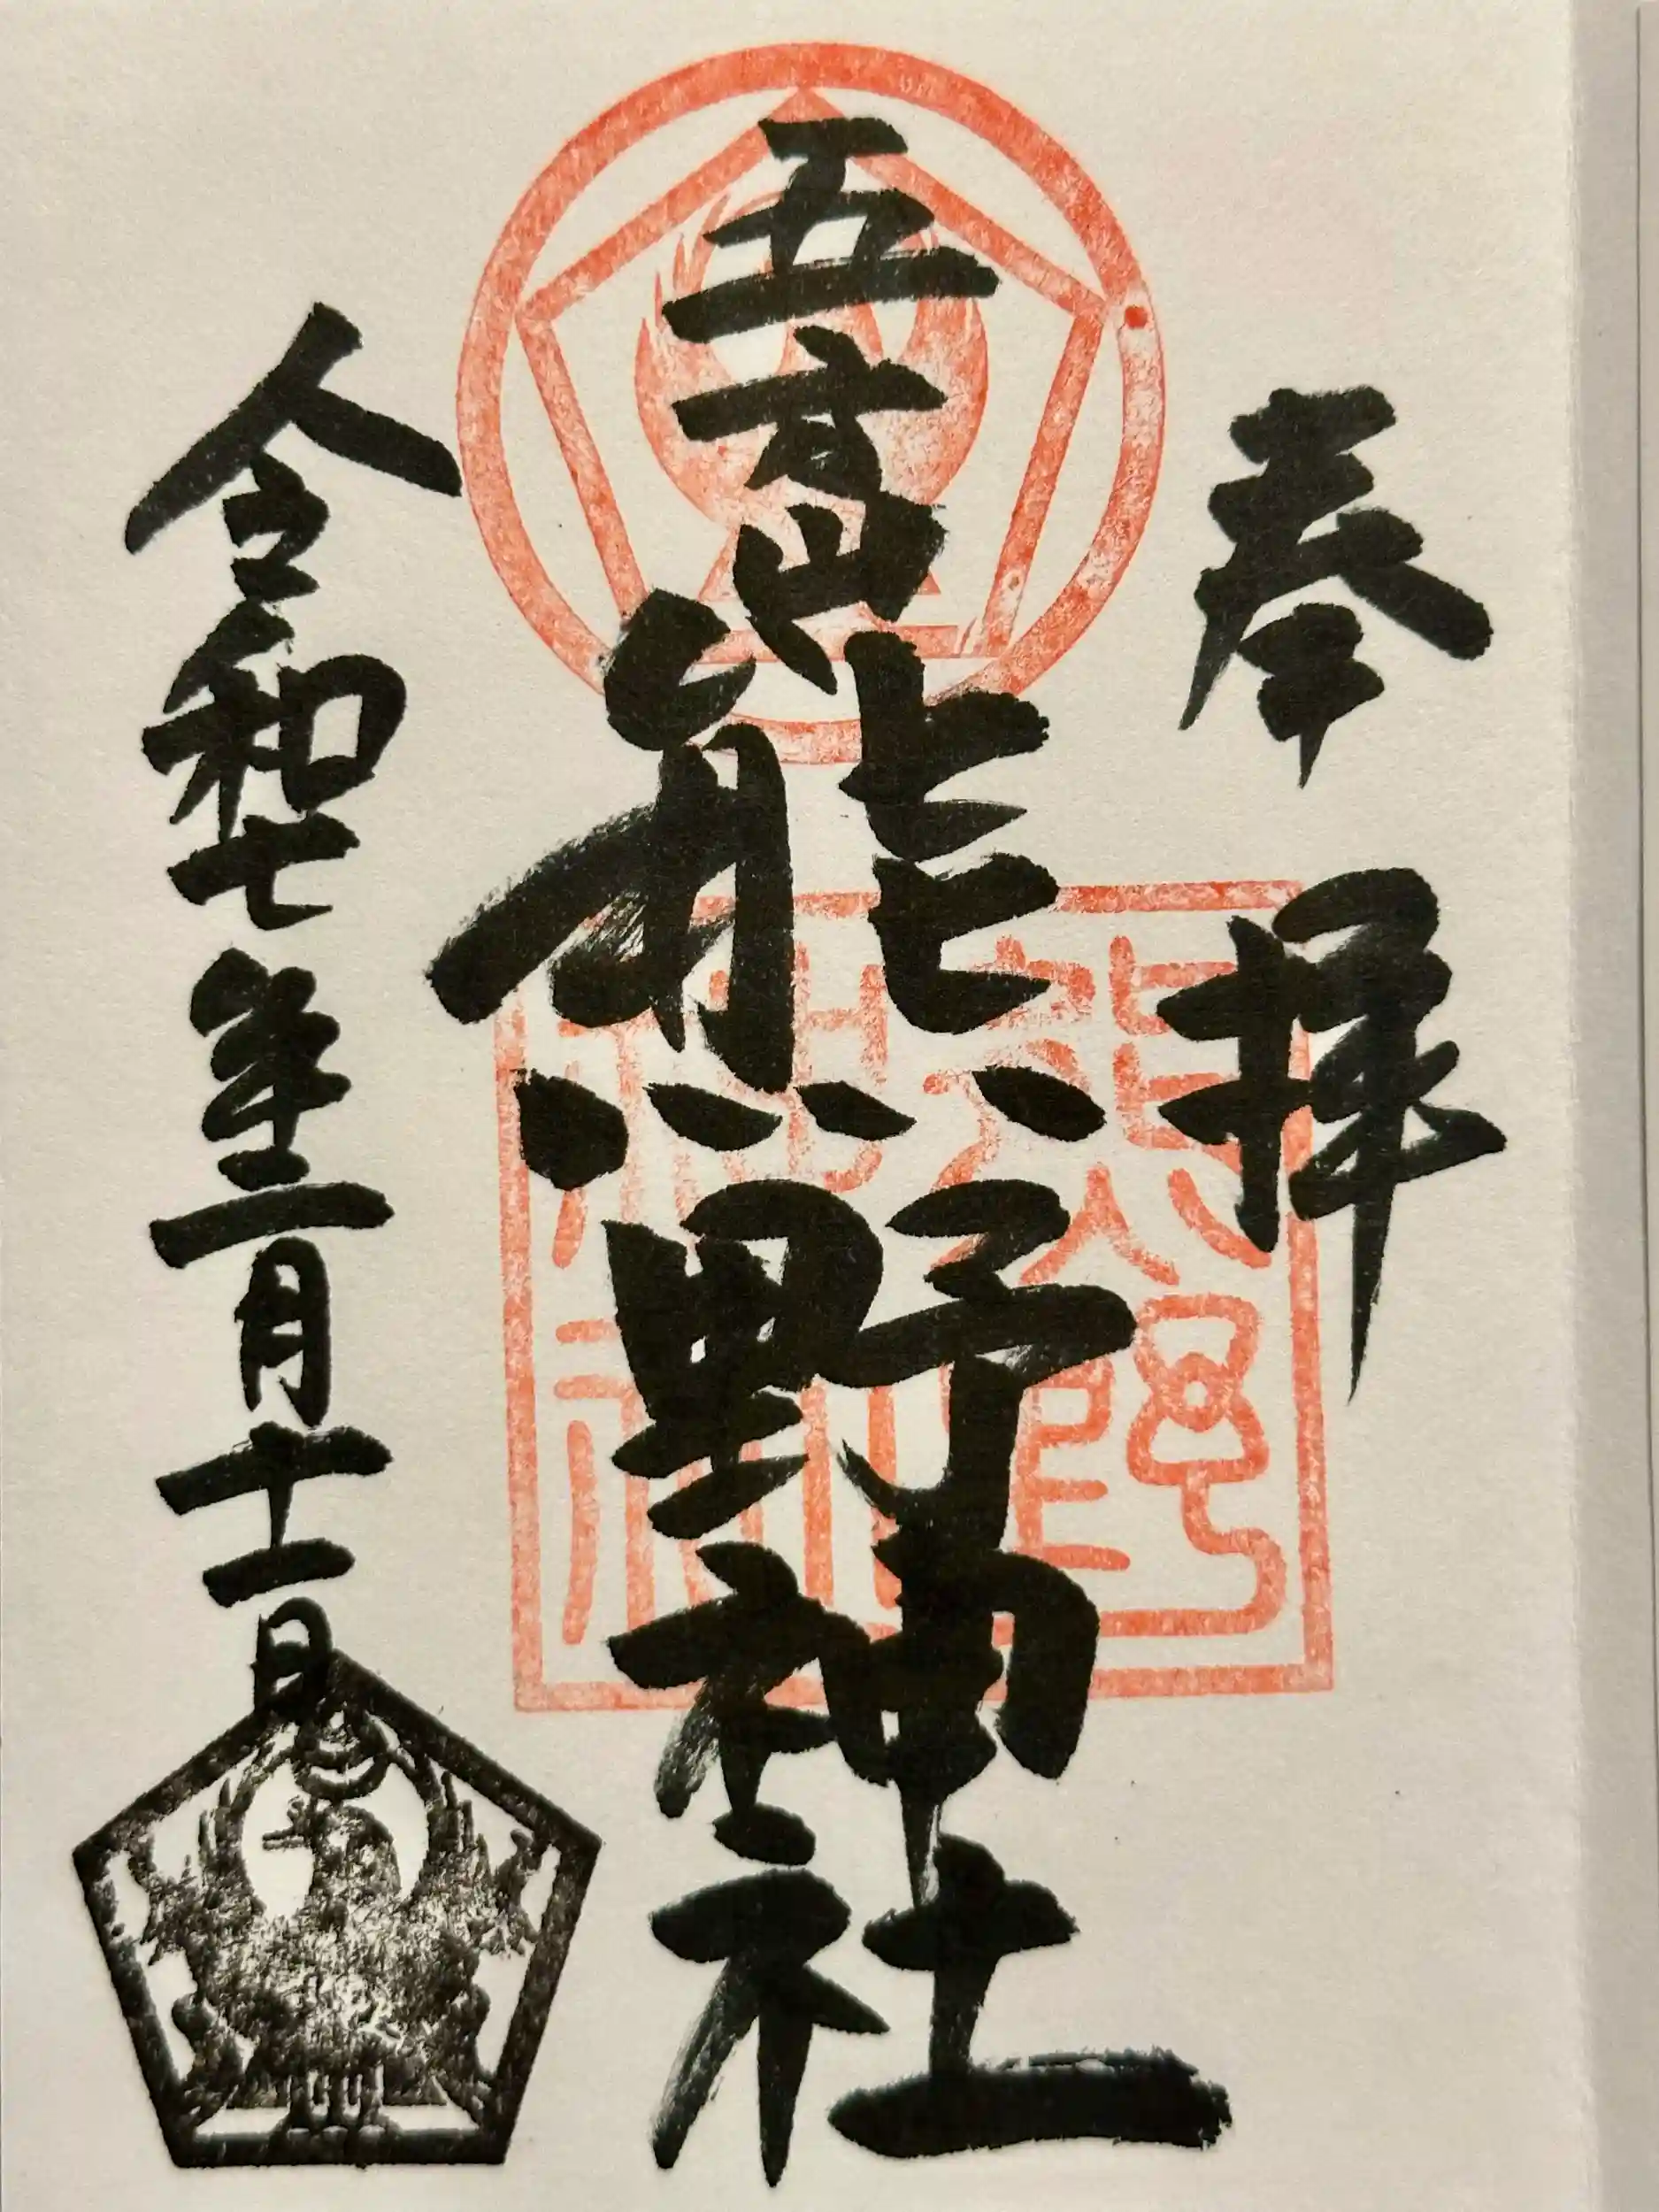 奉拝
五方山
熊野神社
令和七年二月十一日